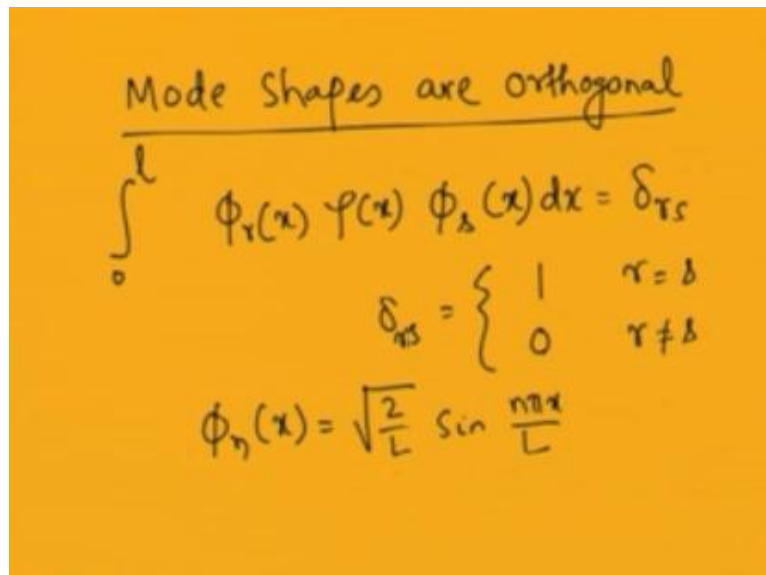 Mode Shapes are orthogonal
∫₀ˡ ϕᵣ(x) φ(x) ϕₛ(x) dx = δᵣₛ
δᵣₛ = { 1 r = s
0 r ≠ s
ϕₙ(x) = √(2/L) Sin nπx/L